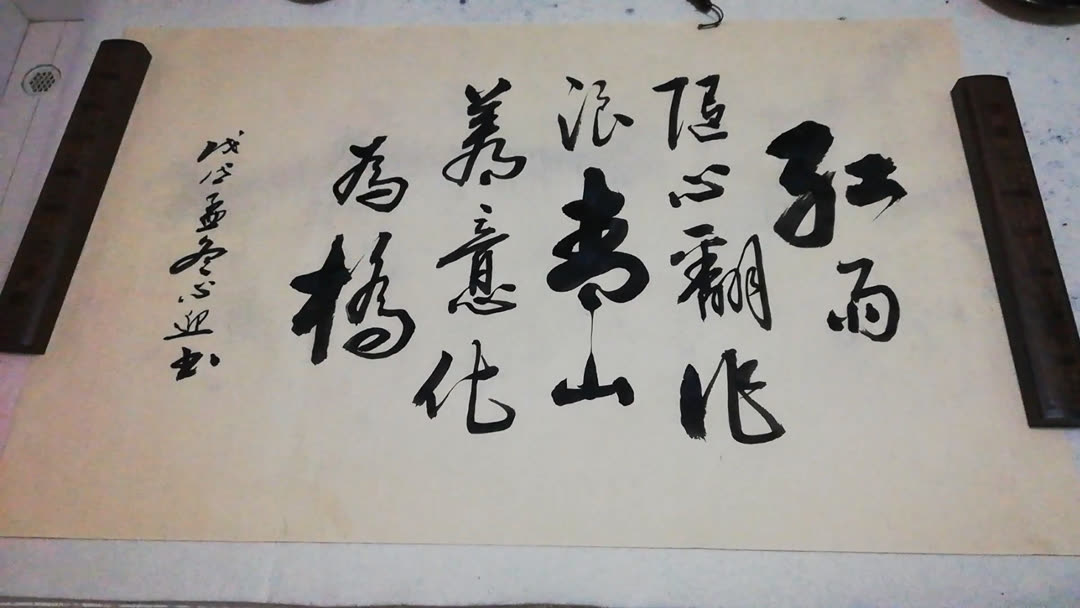 红雨
随心翻作
浪青山
着意化
為橋
戊戌孟冬心迎书